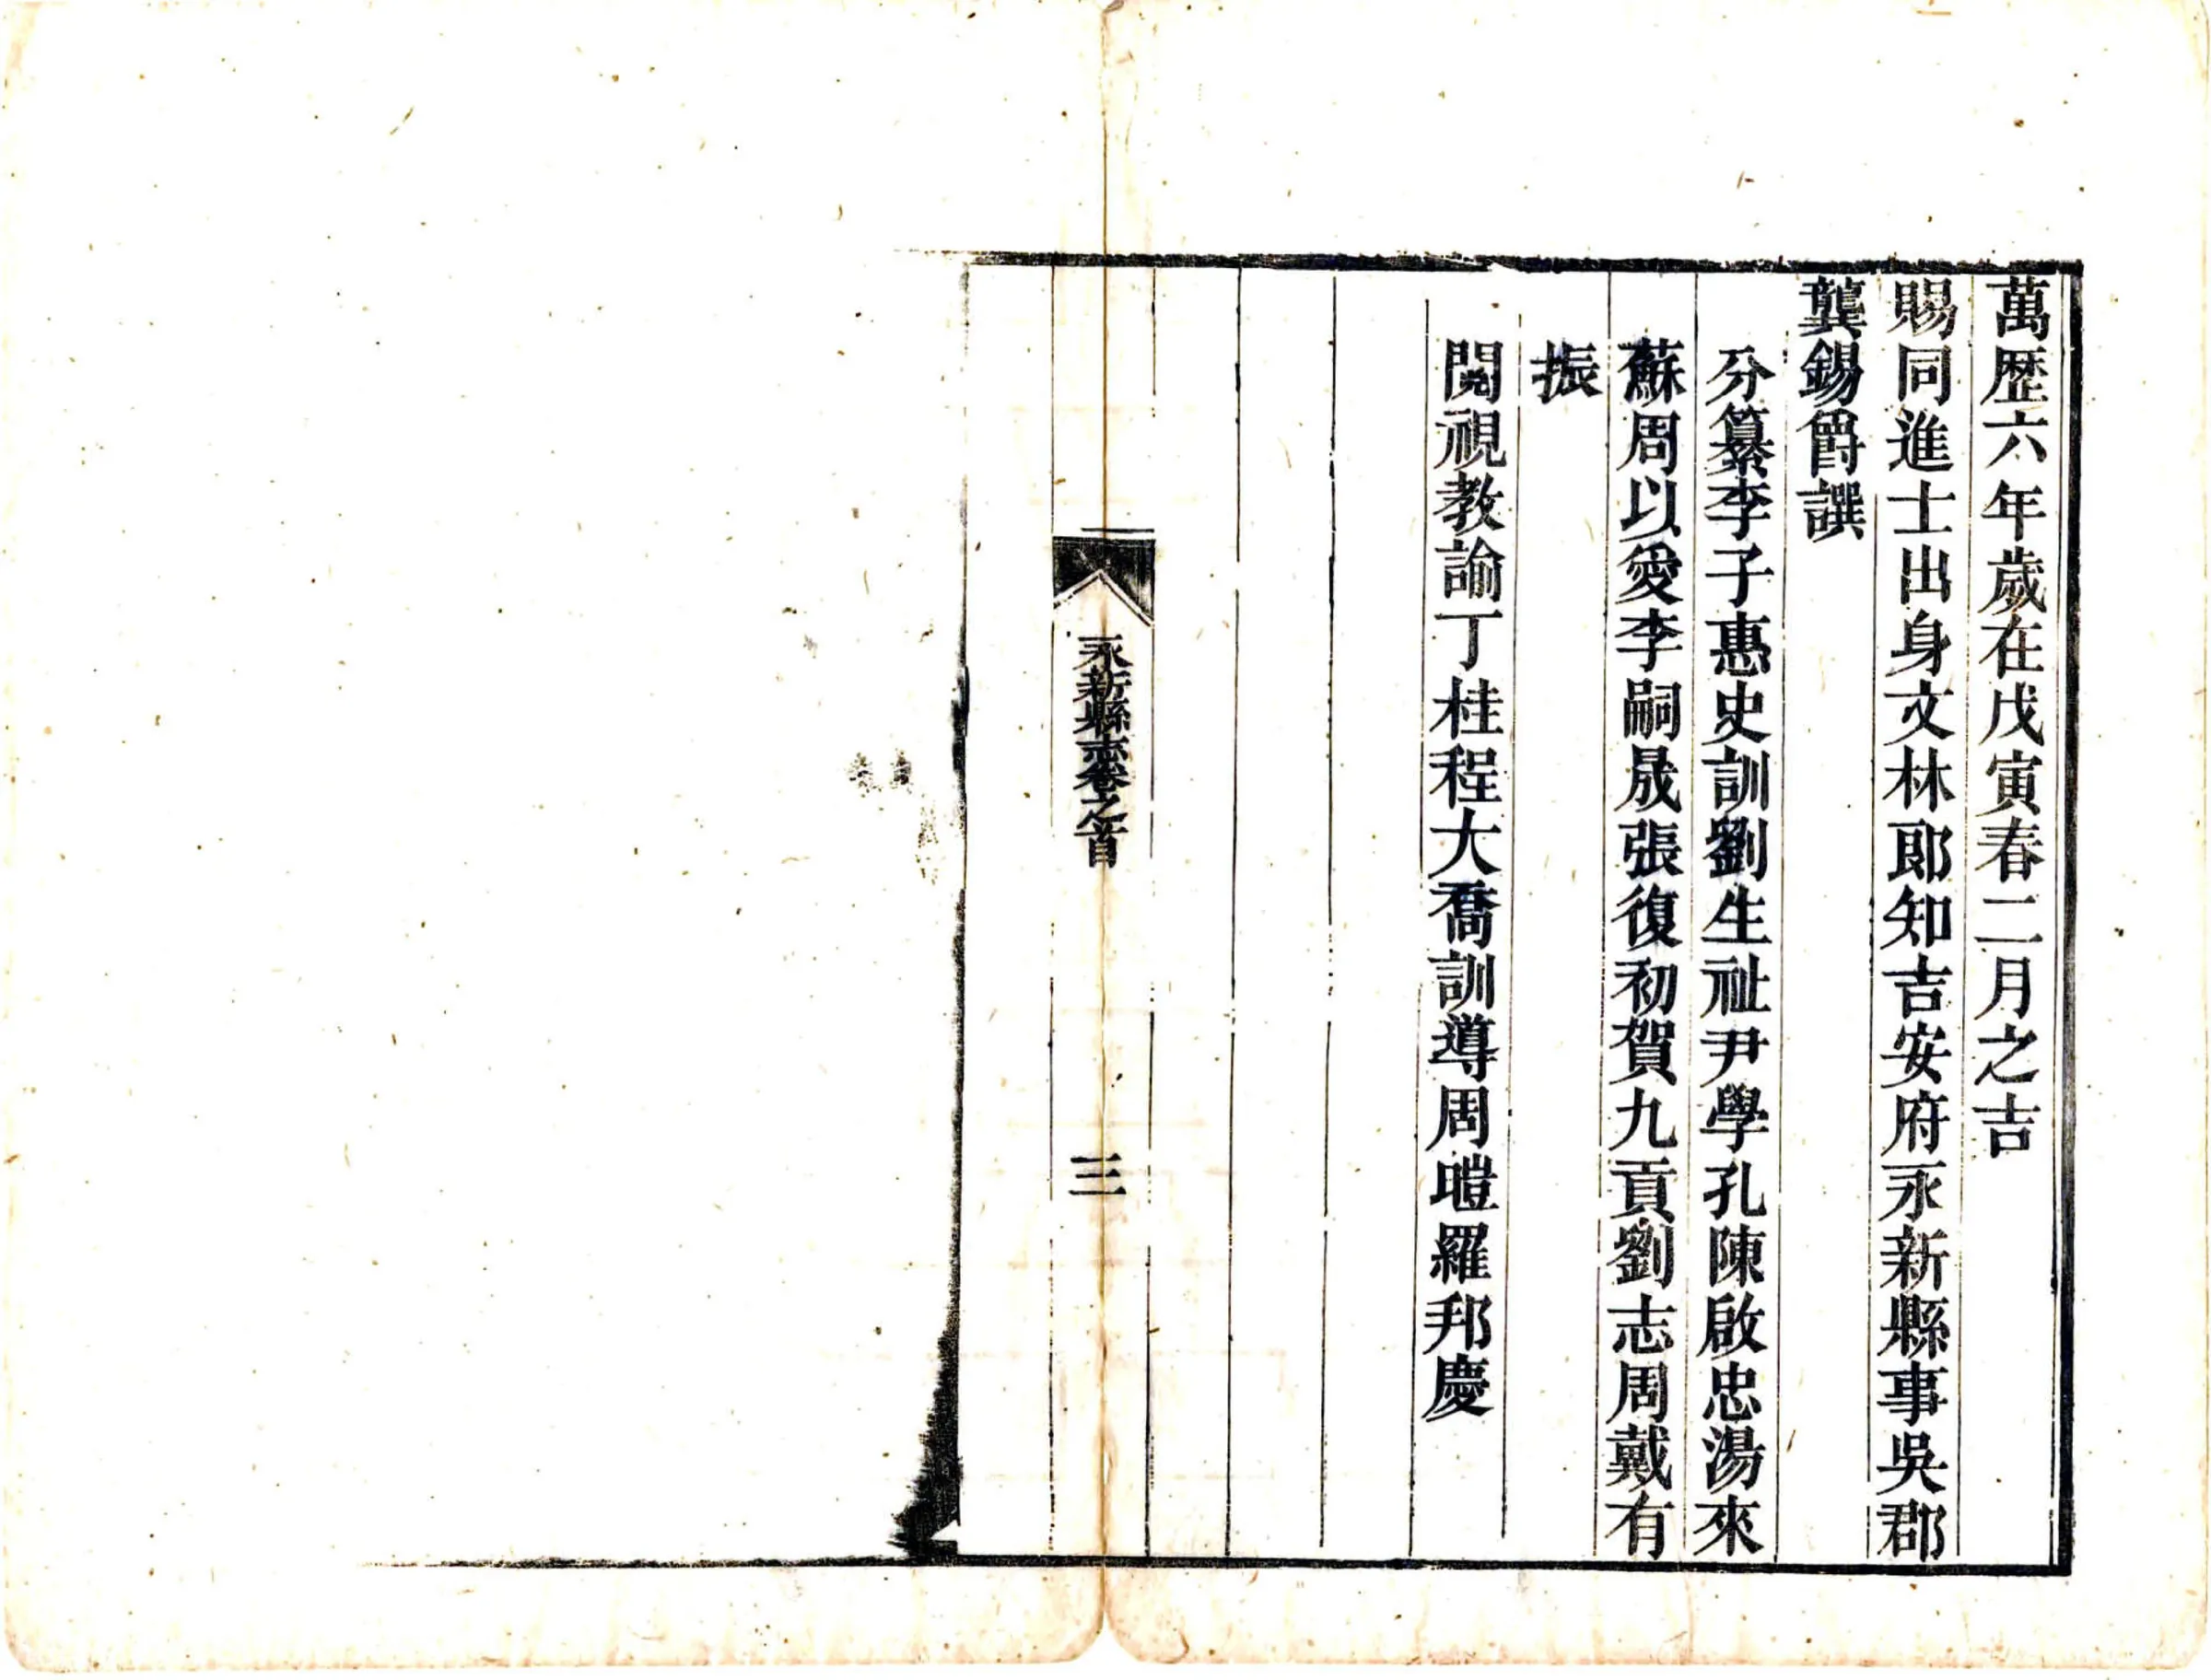 萬歴六年歲在戊寅春二月之吉
賜同進士出身文林郎知吉安府永新縣事吳郡
龔錫爵譔
分纂李子惠史訓劉生祉尹學孔陳啟忠湯來
蘇周以愛李嗣晟張復初賀九貢劉志周戴有
振
閱視教諭丁桂程大喬訓導周瞪羅邦慶
永新縣志卷之首
三